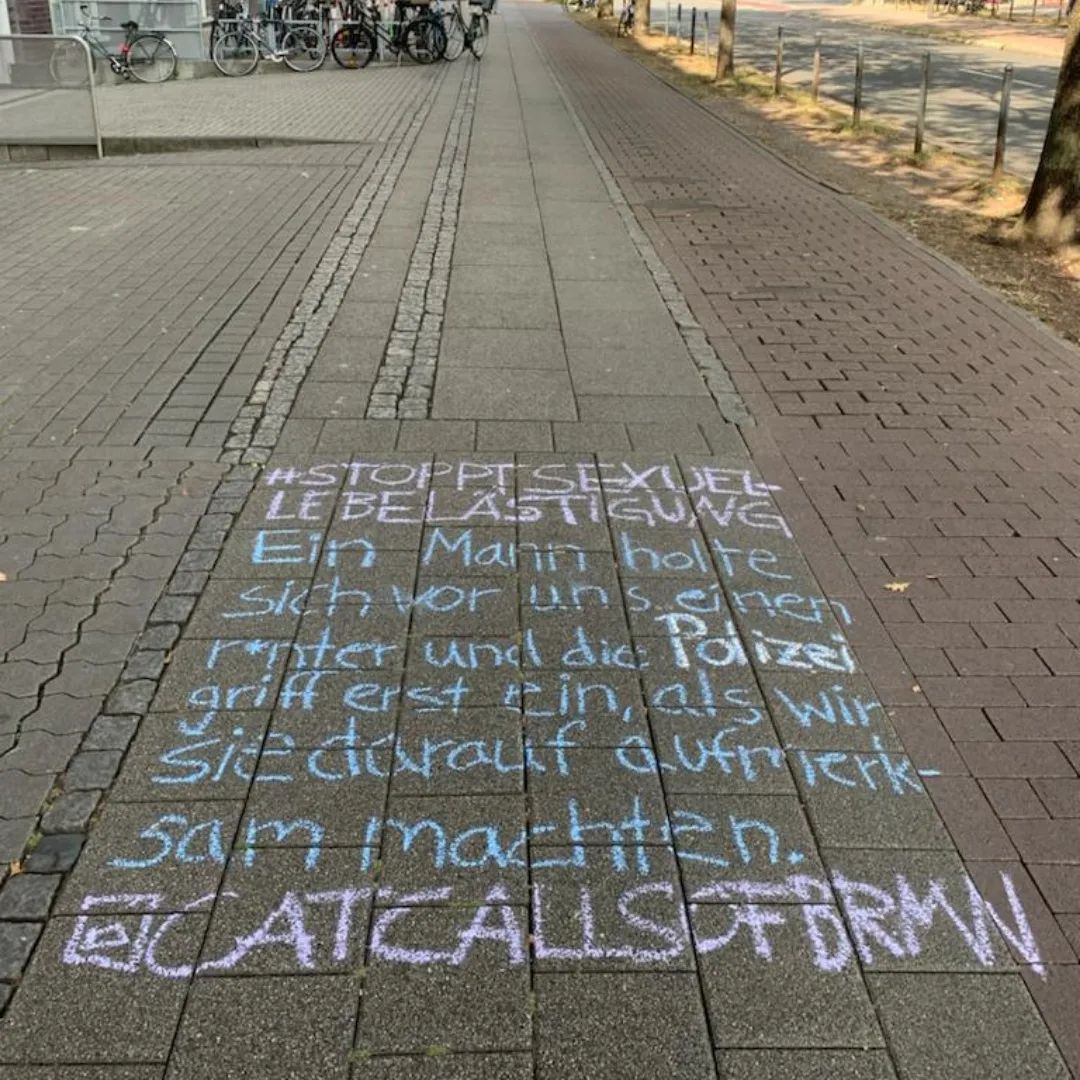 #STOPPT SEXUEL-
LE BELÄSTIGUNG
Ein Mann holte
sich vor uns einen
r*nter und die Polizei
griff erst ein, als wir
sie darauf aufmerk-
sam machten.
@CATCALLSOFBRMN